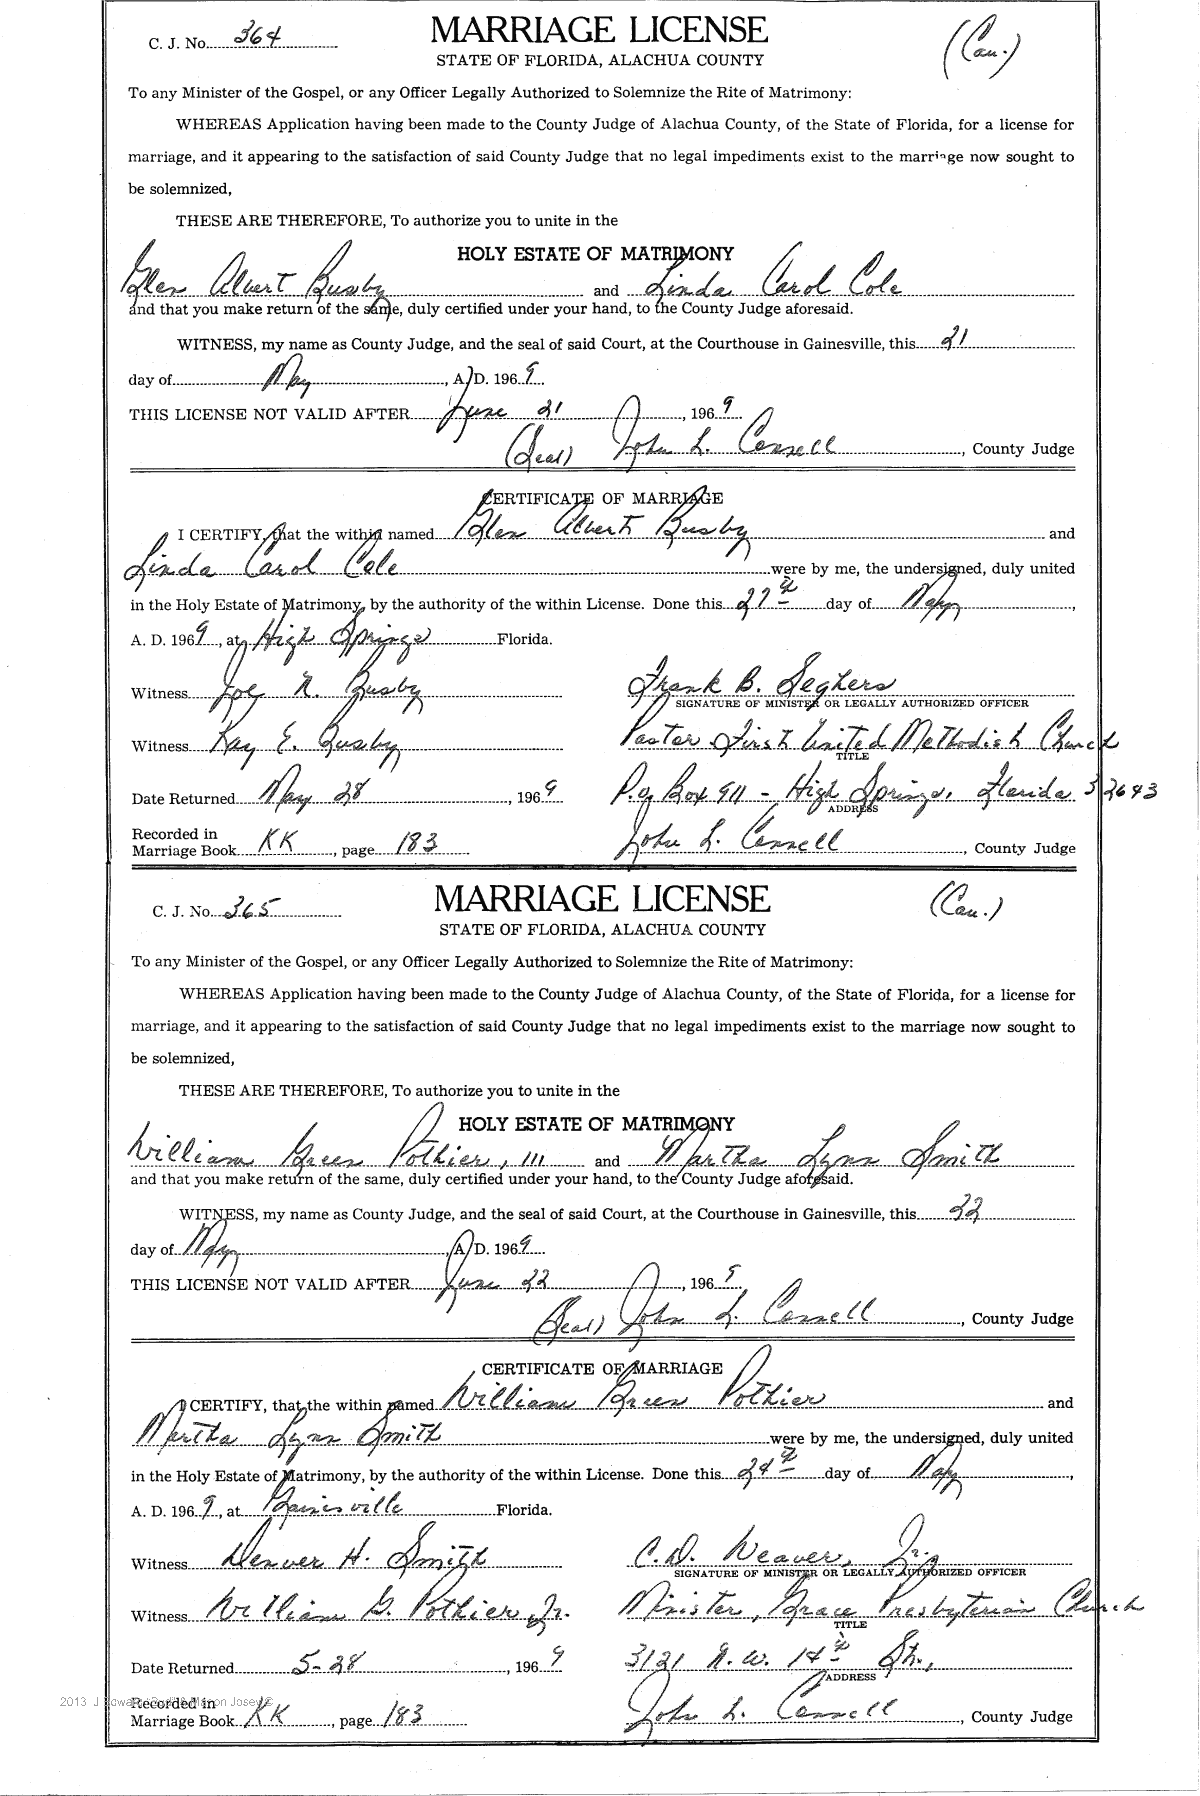 C. J. No. 364
MARRIAGE LICENSE
(Cau.)
STATE OF FLORIDA, ALACHUA COUNTY
To any Minister of the Gospel, or any Officer Legally Authorized to Solemnize the Rite of Matrimony:
WHEREAS Application having been made to the County Judge of Alachua County, of the State of Florida, for a license for
marriage, and it appearing to the satisfaction of said County Judge that no legal impediments exist to the marriage now sought to
be solemnized,
THESE ARE THEREFORE, To authorize you to unite in the
HOLY ESTATE OF MATRIMONY
Glen Albert Busby and Linda Carol Cole
and that you make return of the same, duly certified under your hand, to the County Judge aforesaid.
WITNESS, my name as County Judge, and the seal of said Court, at the Courthouse in Gainesville, this 21
day of May, A. D. 1969
THIS LICENSE NOT VALID AFTER June 21, 1969
(Seal) John L. Connell, County Judge
CERTIFICATE OF MARRIAGE
I CERTIFY, that the within named Glen Albert Busby and
Linda Carol Cole were by me, the undersigned, duly united
in the Holy Estate of Matrimony, by the authority of the within License. Done this 27th day of May,
A. D. 1969, at High Springs Florida.
Witness Joe N. Busby Frank B. Seghers
SIGNATURE OF MINISTER OR LEGALLY AUTHORIZED OFFICER
Witness Kay E. Busby Pastor First United Methodist Church
TITLE
Date Returned May 28, 1969 P.O. Box 911 - High Springs, Florida 32643
ADDRESS
Recorded in
Marriage Book KK, page 183 John L. Connell, County Judge
C. J. No. 365
MARRIAGE LICENSE
(Cau.)
STATE OF FLORIDA, ALACHUA COUNTY
To any Minister of the Gospel, or any Officer Legally Authorized to Solemnize the Rite of Matrimony:
WHEREAS Application having been made to the County Judge of Alachua County, of the State of Florida, for a license for
marriage, and it appearing to the satisfaction of said County Judge that no legal impediments exist to the marriage now sought to
be solemnized,
THESE ARE THEREFORE, To authorize you to unite in the
HOLY ESTATE OF MATRIMONY
William Green Pothier, III and Martha Lynn Smith
and that you make return of the same, duly certified under your hand, to the County Judge aforesaid.
WITNESS, my name as County Judge, and the seal of said Court, at the Courthouse in Gainesville, this 22
day of May, A. D. 1969
THIS LICENSE NOT VALID AFTER June 22, 1969
(Seal) John L. Connell, County Judge
CERTIFICATE OF MARRIAGE
I CERTIFY, that the within named William Green Pothier and
Martha Lynn Smith were by me, the undersigned, duly united
in the Holy Estate of Matrimony, by the authority of the within License. Done this 24th day of May,
A. D. 1969, at Gainesville Florida.
Witness Denver H. Smith C. D. Weaver, Jr.
SIGNATURE OF MINISTER OR LEGALLY AUTHORIZED OFFICER
Witness William G. Pothier, Jr. Minister, Grace Presbyterian Church
TITLE
Date Returned 5-28, 1969 3121 N.W. 14th St.,
ADDRESS
2013 J
Recorded in
Marriage Book KK, page 183 John L. Connell, County Judge